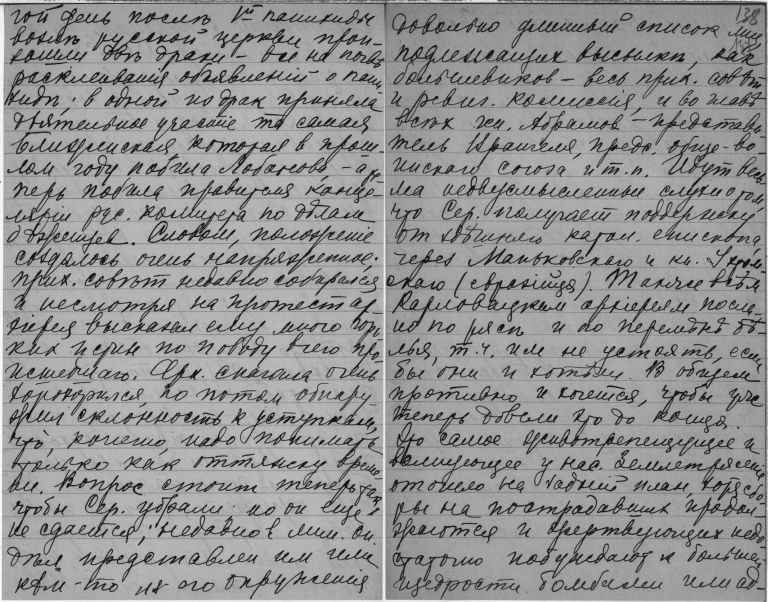 гой день послѣ 1ой панихиды
возлѣ русской церкви прои-
зошли двѣ драки – все на почвѣ
расклеивания объявлений о пани-
хидѣ; в одной из драк приняла
дѣятельное участие та самая
которая в прош-
лом году побила Лобанова – а те-
перь побила правителя канце-
лярии рус. комитета по дѣлам
бѣженцев. Словом, положение
создалось очень напряженное;
прих. совѣт недавно собирался
и несмотря на протест ар-
хиерея высказал ему много горь-
ких истин по поводу всего про-
исшедшаго. Арх. сначала очень
хорохорился но потом обнару-
жил склонность к уступкам,
что, конечно надо понимать
только как оттяжку време-
ни. Вопрос стоит теперь так,
чтобы Сер. убрали но он еще
не сдается; недавно в мин. ин.
дѣл представлен им или
кѣм-то из его окружения
138
довольно длинный список лиц
подлежащих высылкѣ, как
большевиков – весь прих. совѣт
и ревиз. комиссия, и во главѣ
всѣх ген. Абрамов – представи-
тель Врангеля, предс. обще-во-
инскаго союза и т.п. Идут весь-
ма недвусмысленные слухи о том,
что Сер. получает поддержку
от здѣшняго катол. епископа
через Маньковскаго и кн.
скаго (евразийца). Также всѣм
Карловацким архиереям посла-
но по рясѣ и по перемѣнѣ бѣ-
лья, т.ч. им не устоять, если
бы они и хотѣли. В общем
противно и хочется, чтобы уже
теперь довели это до конца.
Это самое животрепещущее и
волнующее у нас. Землетрясение
отошло на задний план, хотя сбо-
ры на пострадавших продол-
жаются и жертвующих недо-
статочно побуждают к большей
щедрости бомбами или